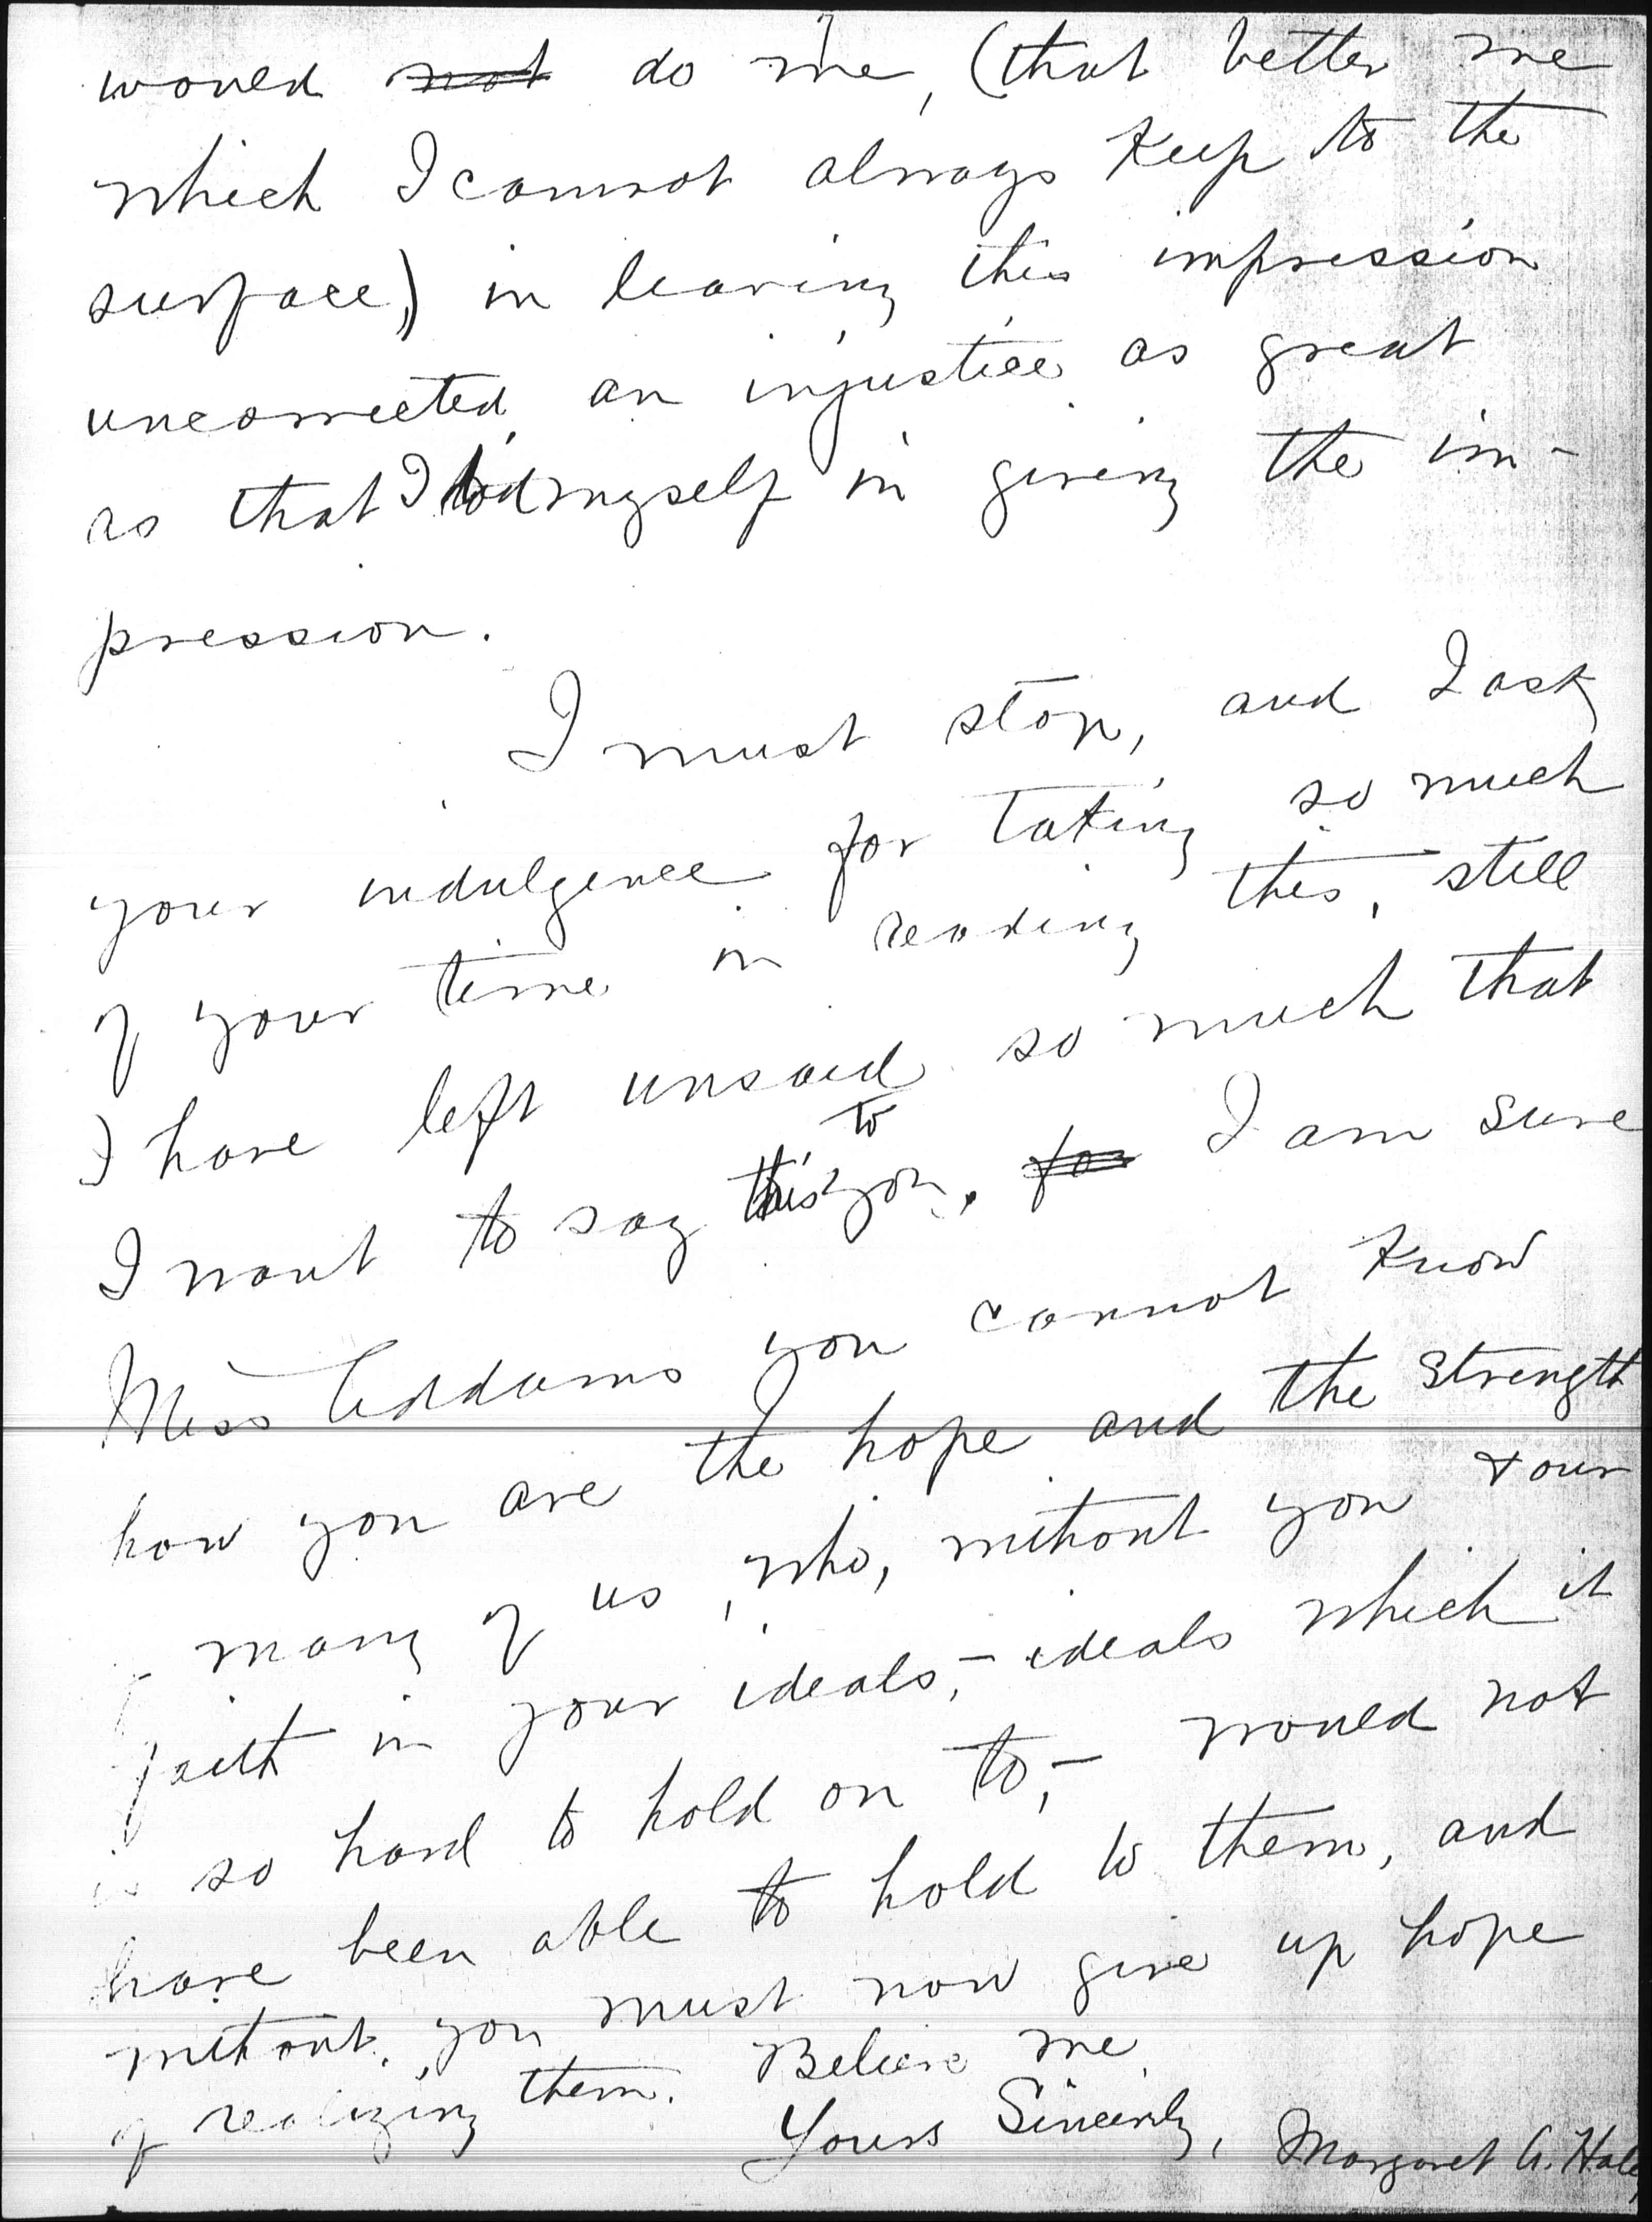 would not do me, (that better me
which I cannot always keep to the
surface,) in leaving this impression
uncorrected, an injustice as great
as that I did myself in giving the im-
pression.
I must stop, and I ask
your indulgence for taking so much
of your time in reading this, still
I have left unsaid so much that
to
I want to say you. for I am sure
Miss Addams you cannot know
how you are the hope and the strength
of many of us, who, without you & our
faith in your ideals,- ideals which it
is so hard to hold on to,- would not
have been able to hold to them, and
without you must now give up hope
of realizing them. Believe me,
Yours Sincerely, Margaret A. Haley